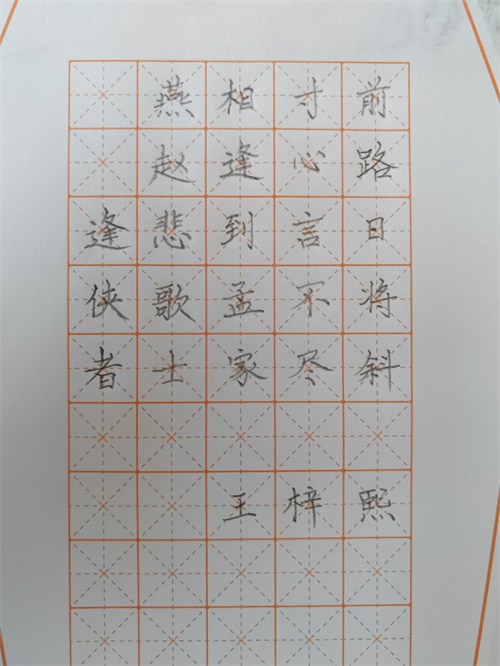 逢侠者
燕赵悲歌士
相逢到孟家
寸心言不尽
前路日将斜
王梓熙